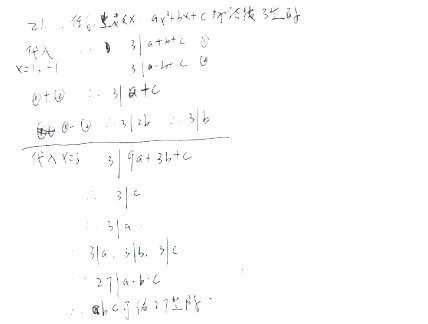 21. 任何整数x ax²+bx+c 都能被3整除
代入 ∴ 3|a+b+c ①
x=1, -1 3|a-b+c ②
①+② ∴ 3|a+c
①-② ∴ 3|2b ∴ 3|b
代入x=3 3|9a+3b+c
∴ 3|c
∴ 3|a
∴ 3|a, 3|b, 3|c
∴ 27|a·b·c
∴ abc可被27整除.